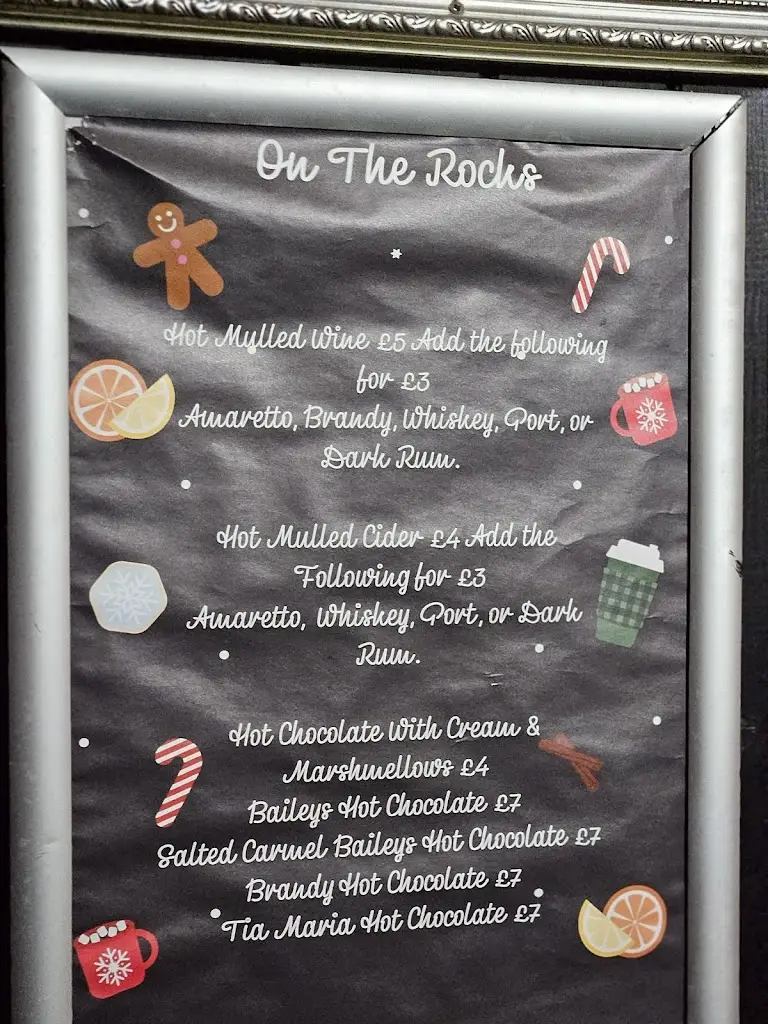 On The Rocks
Hot Mulled Wine £5 Add the following
for £3
Amaretto, Brandy, Whiskey, Port, or
Dark Rum.
Hot Mulled Cider £4 Add the
Following for £3
Amaretto, Whiskey, Port, or Dark
Rum.
Hot Chocolate With Cream &
Marshmellows £4
Baileys Hot Chocolate £7
Salted Carmel Baileys Hot Chocolate £7
Brandy Hot Chocolate £7
Tia Maria Hot Chocolate £7